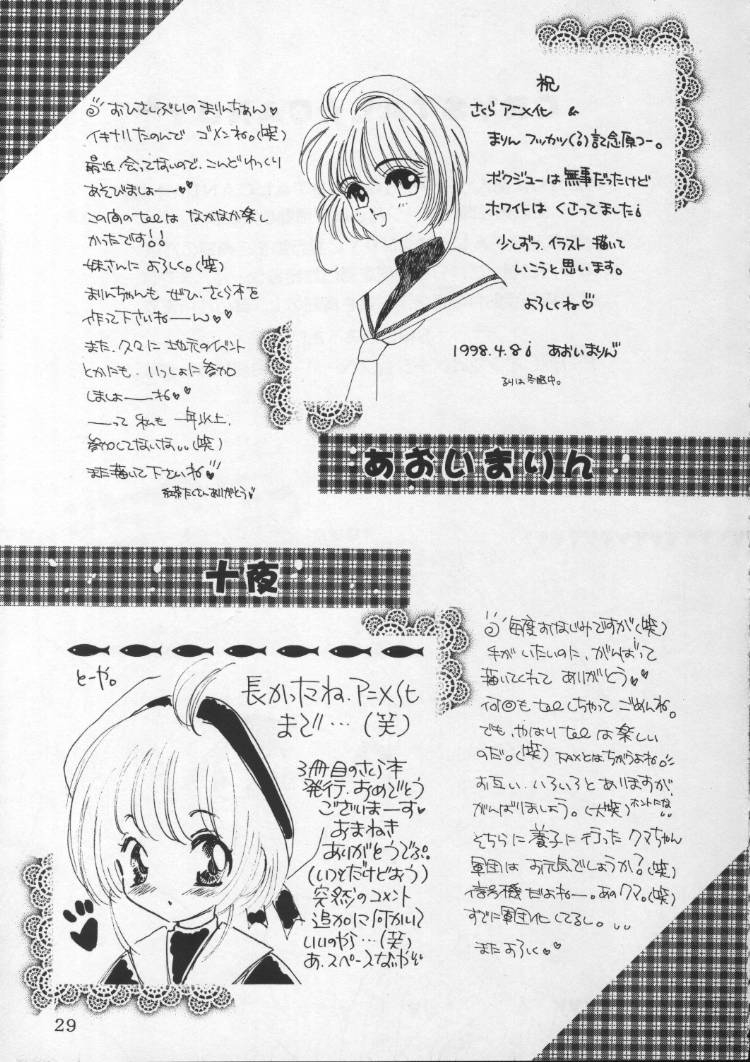 祝
さくら アニメ化 &
まりん フッカツ(る)記念原コー。
ポクジューは無事だったけど
ホワイトは くさってました¡
少しずつ、イラスト 描いて
いこうと思います。
よろしくね♡
1998.4.8¡ あおいまりん
るりは冬眠中。
おひさしぶりの まりんちゃん♥
イキナリたのんで ゴメンね。(笑)
最近、会ってないので、こんどゆっくり
あそびましょー♥♥
この間のtelは なかなか楽し
かったです!!
妹さんに よろしく。(笑)
まりんちゃんも ぜひ、さくら本を
作って下さいねーん♥♥
また、久々に 地元のイベント
とかにも、いっしょに参加
しましょーね♥♥
――って 私も 一年以上、
参加してないな。。(笑)
また描いて下さいね♥
お茶たくさんありがとう♥
あおいまりん
十夜
とーや。
長かったね、アニメ化
まで…(笑)
3冊目のさくら本
発行、おめでとう
ございまーす♥
おまねき
ありがとうでぷ。
(いつもだけどおう)
突然のコメント
追加に何かいて
いいのやら…(笑)
あ、スペースなや
毎度おなじみですが(笑)
手がいたいのに、がんばって
描いてくれて ありがとう♥
何回も telしちゃって ごめんね。
でも、やはり telは楽しい
のだ。(笑) FAXとはちがうよね♪
お互い、いろいろとありますが
がんばりましょう。(大笑) ホントにな!!
そちらに養子に行った クマちゃん
軍団は お元気でしょうか?(笑)
信号機だよねー。あのクマ。(笑)
すでに軍団化してるし。。。
また よろしく♥♥
29